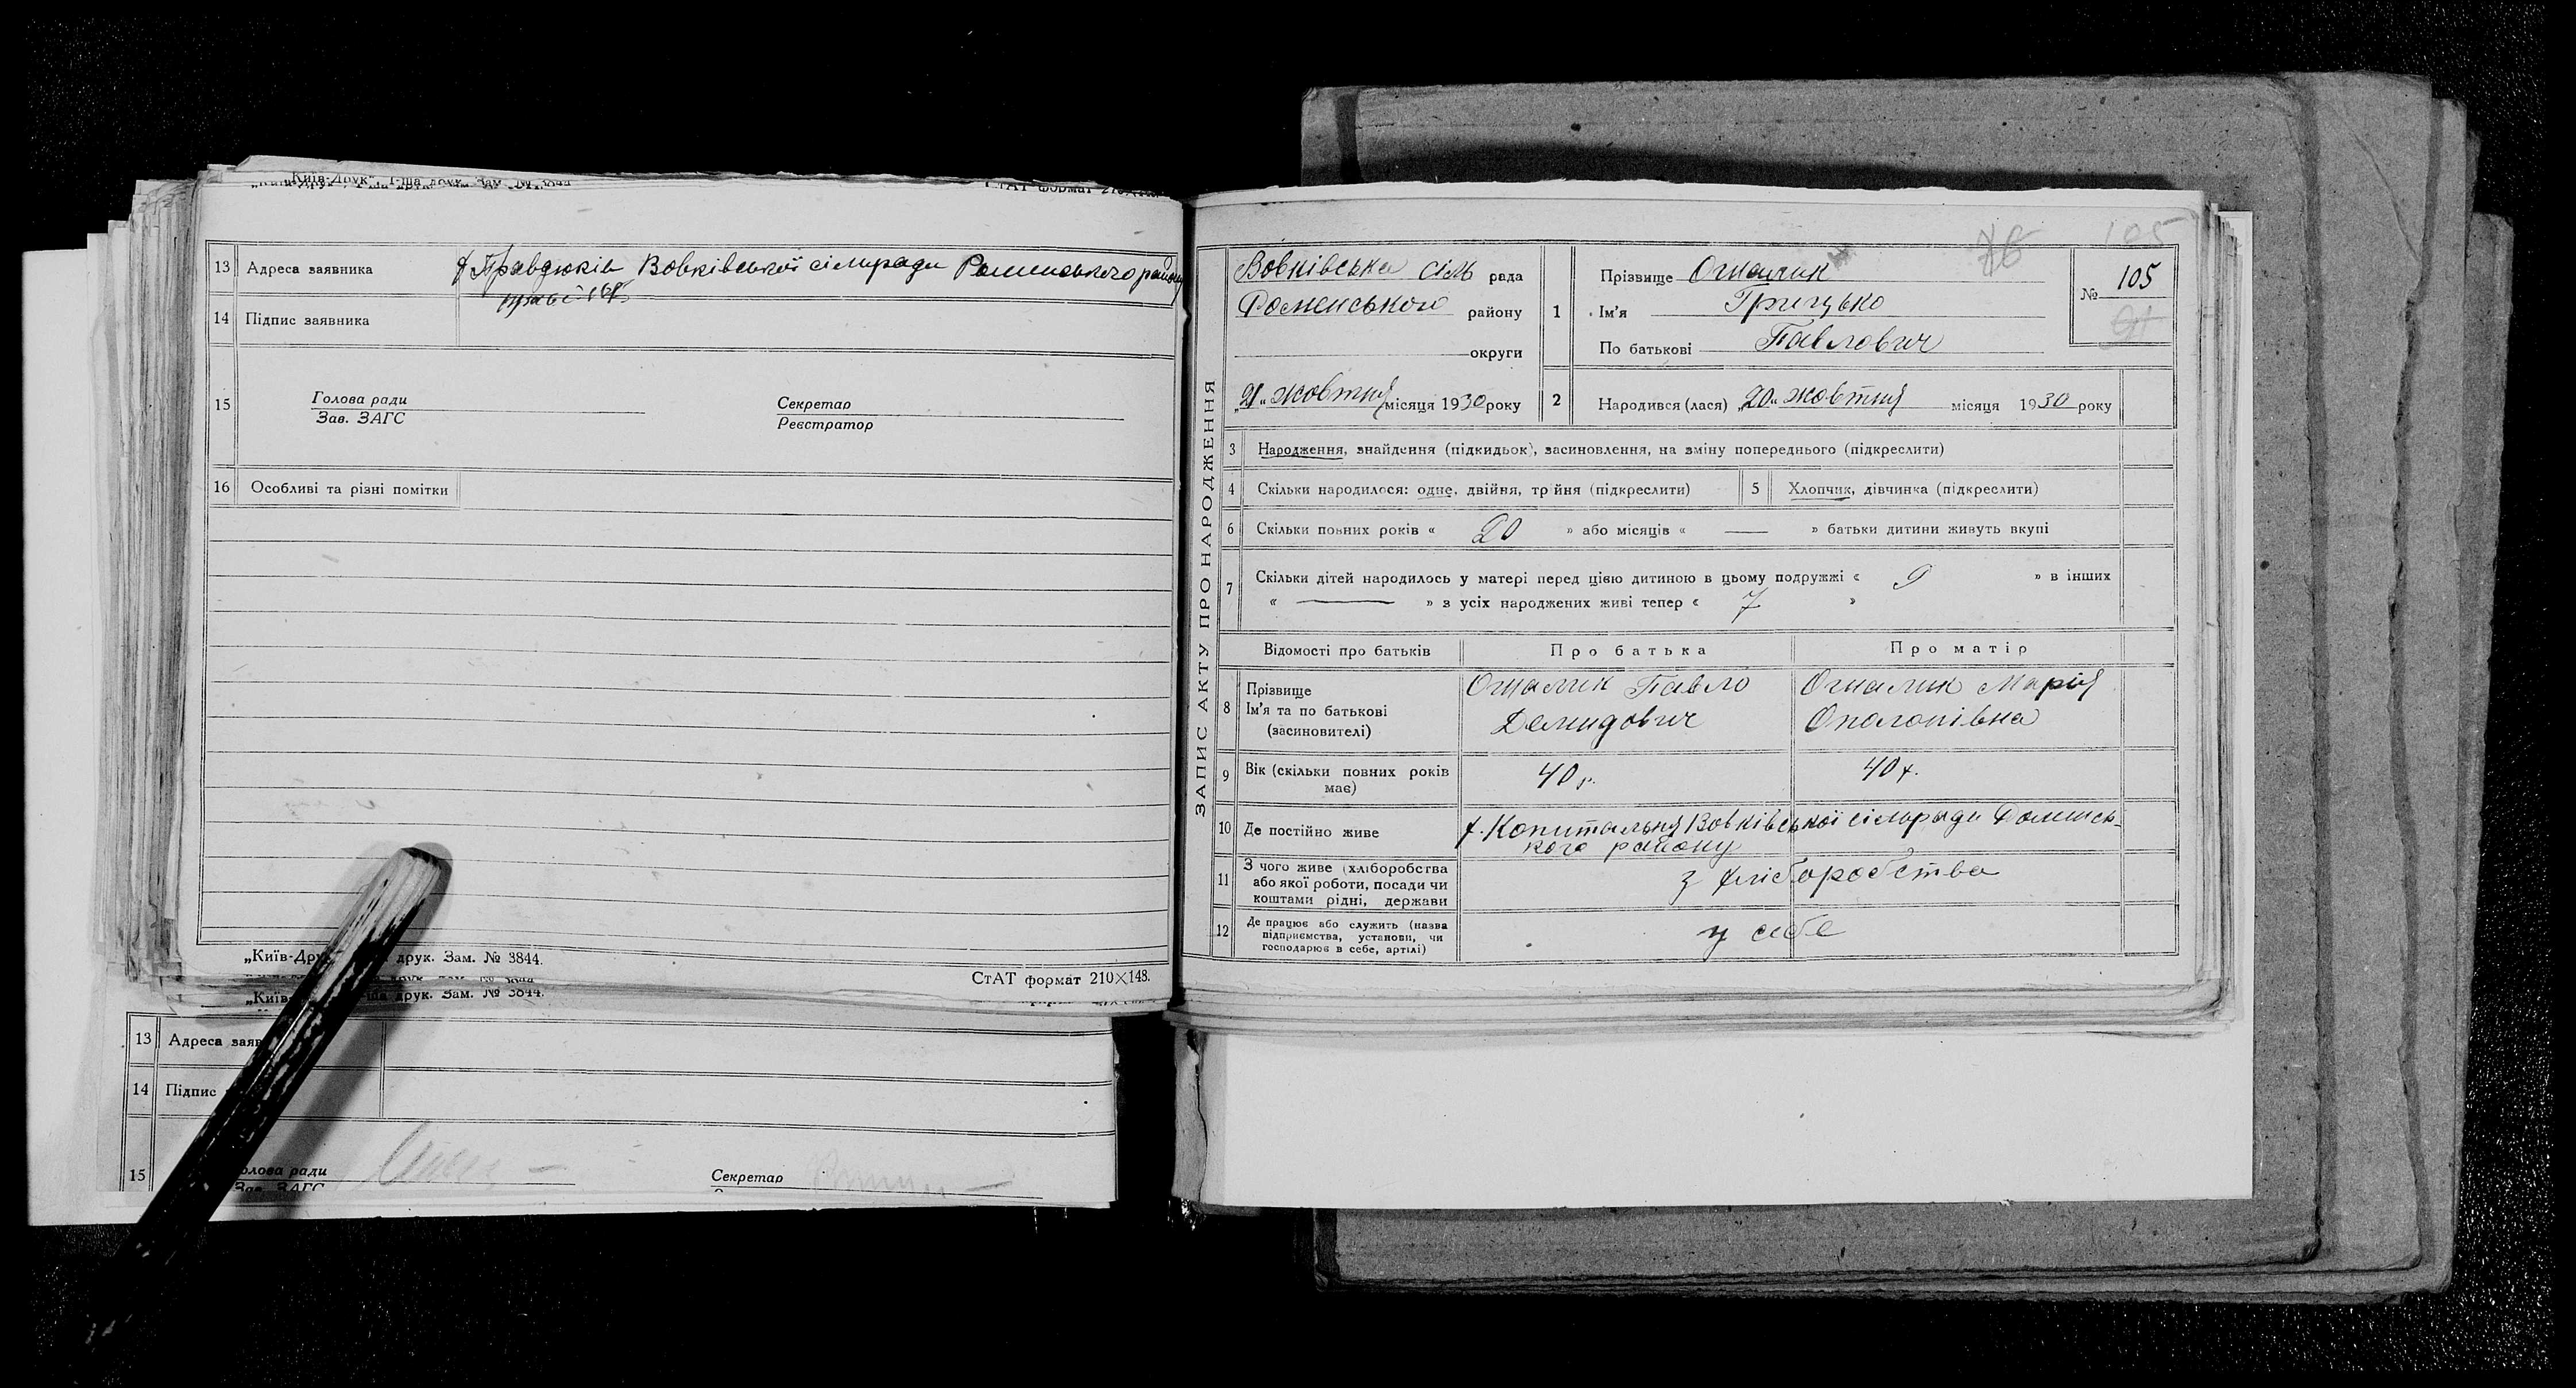 „Київ-Друк", 1-ша друк. Зам. № 3844
СтАТ формат
13 Адреса заявника х Правдюків Вовківської сільради Роменського району
14 Підпис заявника
15 Голова ради Секретар
Зав. ЗАГС Реєстратор
16 Особливі та різні помітки
„Київ-Друк друк. Зам. № 3844.
СтАТ формат 210×148.
„Київ- друк. Зам. № 3844.
13 Адреса заяв
14 Підпис
15 олова ради Секретар
Зав. ЗАГС
ЗАПИС АКТУ ПРО НАРОДЖЕННЯ
105
Вовківська сіль рада
Роменського району
округи
„21" жовтня місяця 1930 року
1 Прізвище Огналик
Ім'я Грицько
По батькові Павлович
№ 105
2 Народився (лася) „20" жовтня місяця 1930 року
3 Народження, знайдення (підкидьок), засиновлення, на зміну попереднього (підкреслити)
4 Скільки народилося: одне, двійня, трійня (підкреслити) 5 Хлопчик, дівчинка (підкреслити)
6 Скільки повних років « 20 » або місяців « — » батьки дитини живуть вкупі
7 Скільки дітей народилось у матері перед цією дитиною в цьому подружжі « 9 » в інших
« — » з усіх народжених живі тепер « 7 »
Відомості про батьків Про батька Про матір
8 Прізвище Огналик Павло Огналик Марія
Ім'я та по батькові Демидович
(засиновителі)
9 Вік (скільки повних років має) 40 р. 40 р.
10 Де постійно живе х. Копитальня Вовківської сільради Роменсь-
кого району
11 З чого живе (хліборобства
або якої роботи, посади чи з хліборобства
коштами рідні, держави
12 Де працює або служить (назва
підприємства, установи, чи у себе
господарює в себе, артілі)